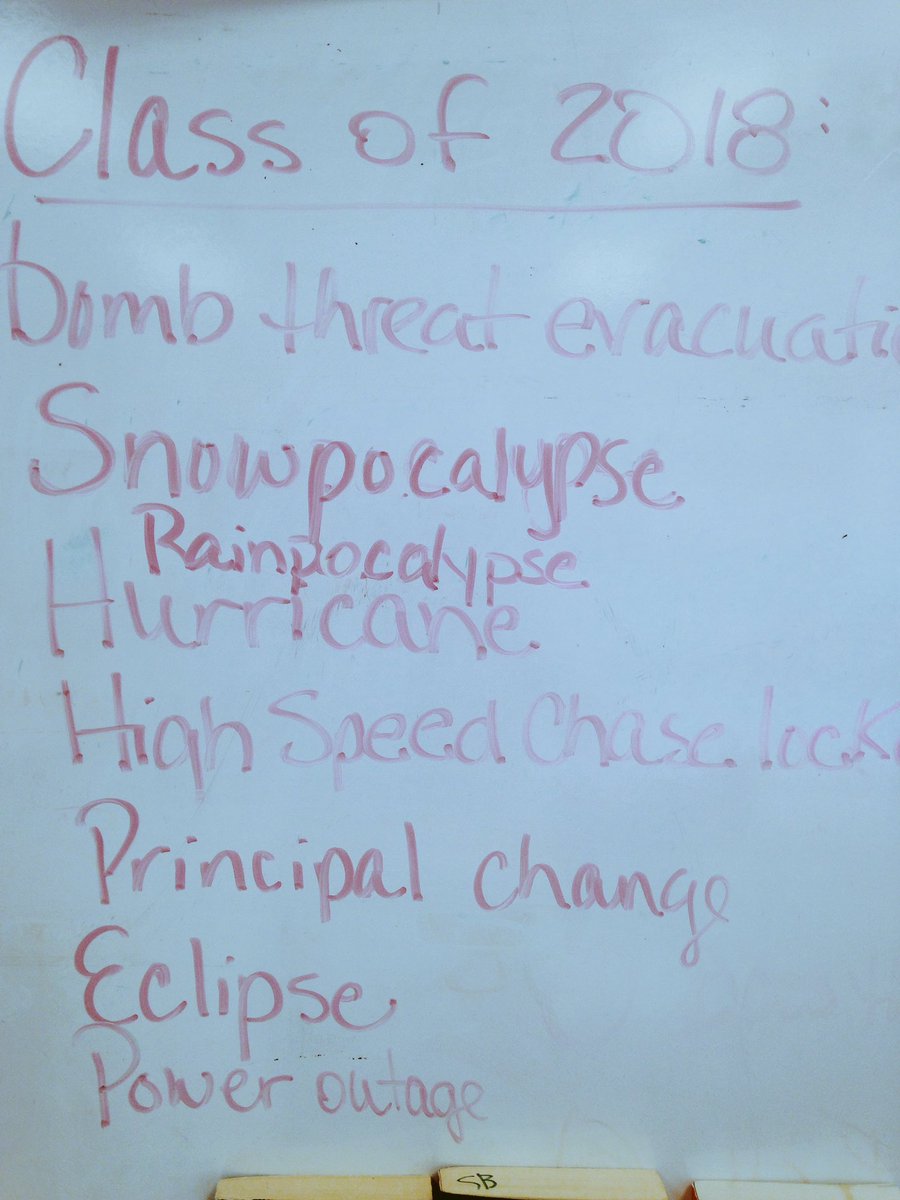 Class of 2018:
bomb threat evacuati
Snowpocalypse
Rainpocalypse
Hurricane
High Speed Chase lock
Principal change
Eclipse
Power outage
SB